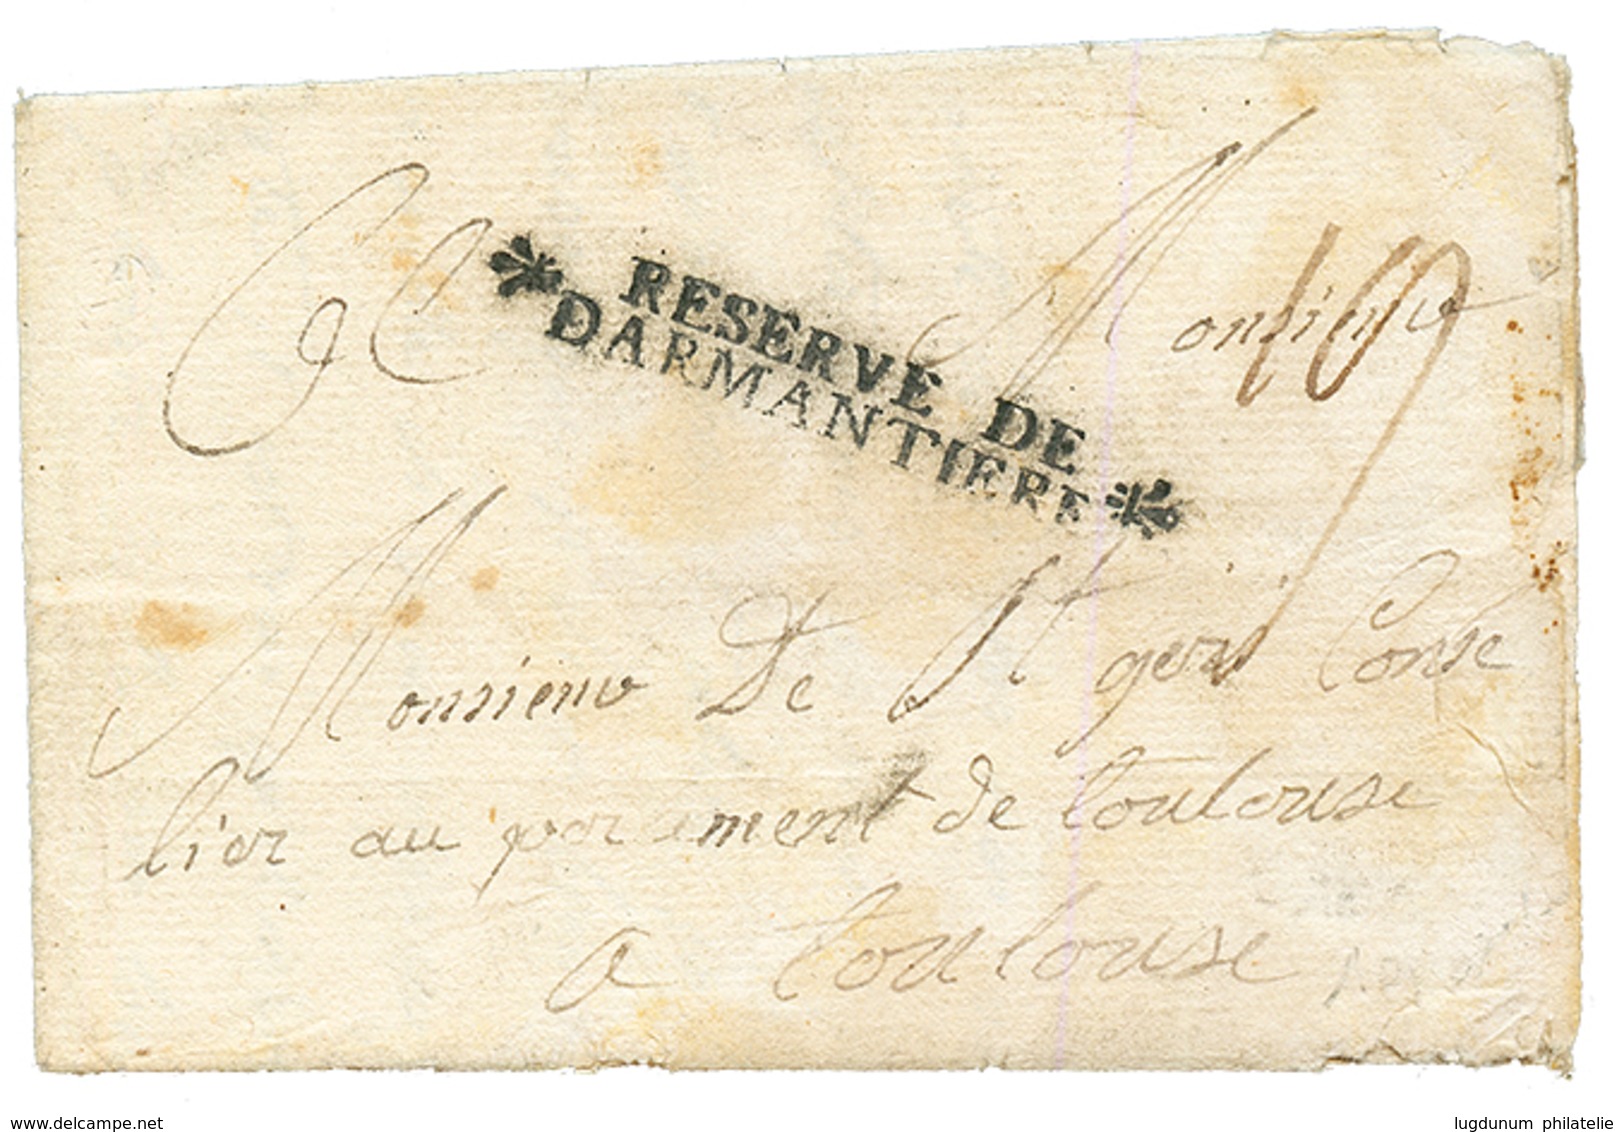 RESERVE DE
DARMANTIERE
Monsieur
19
Monsieur De St geri Conse
lier au parament de toulouse
a toulouse
www.delcampe.net
lugdunum philatelie